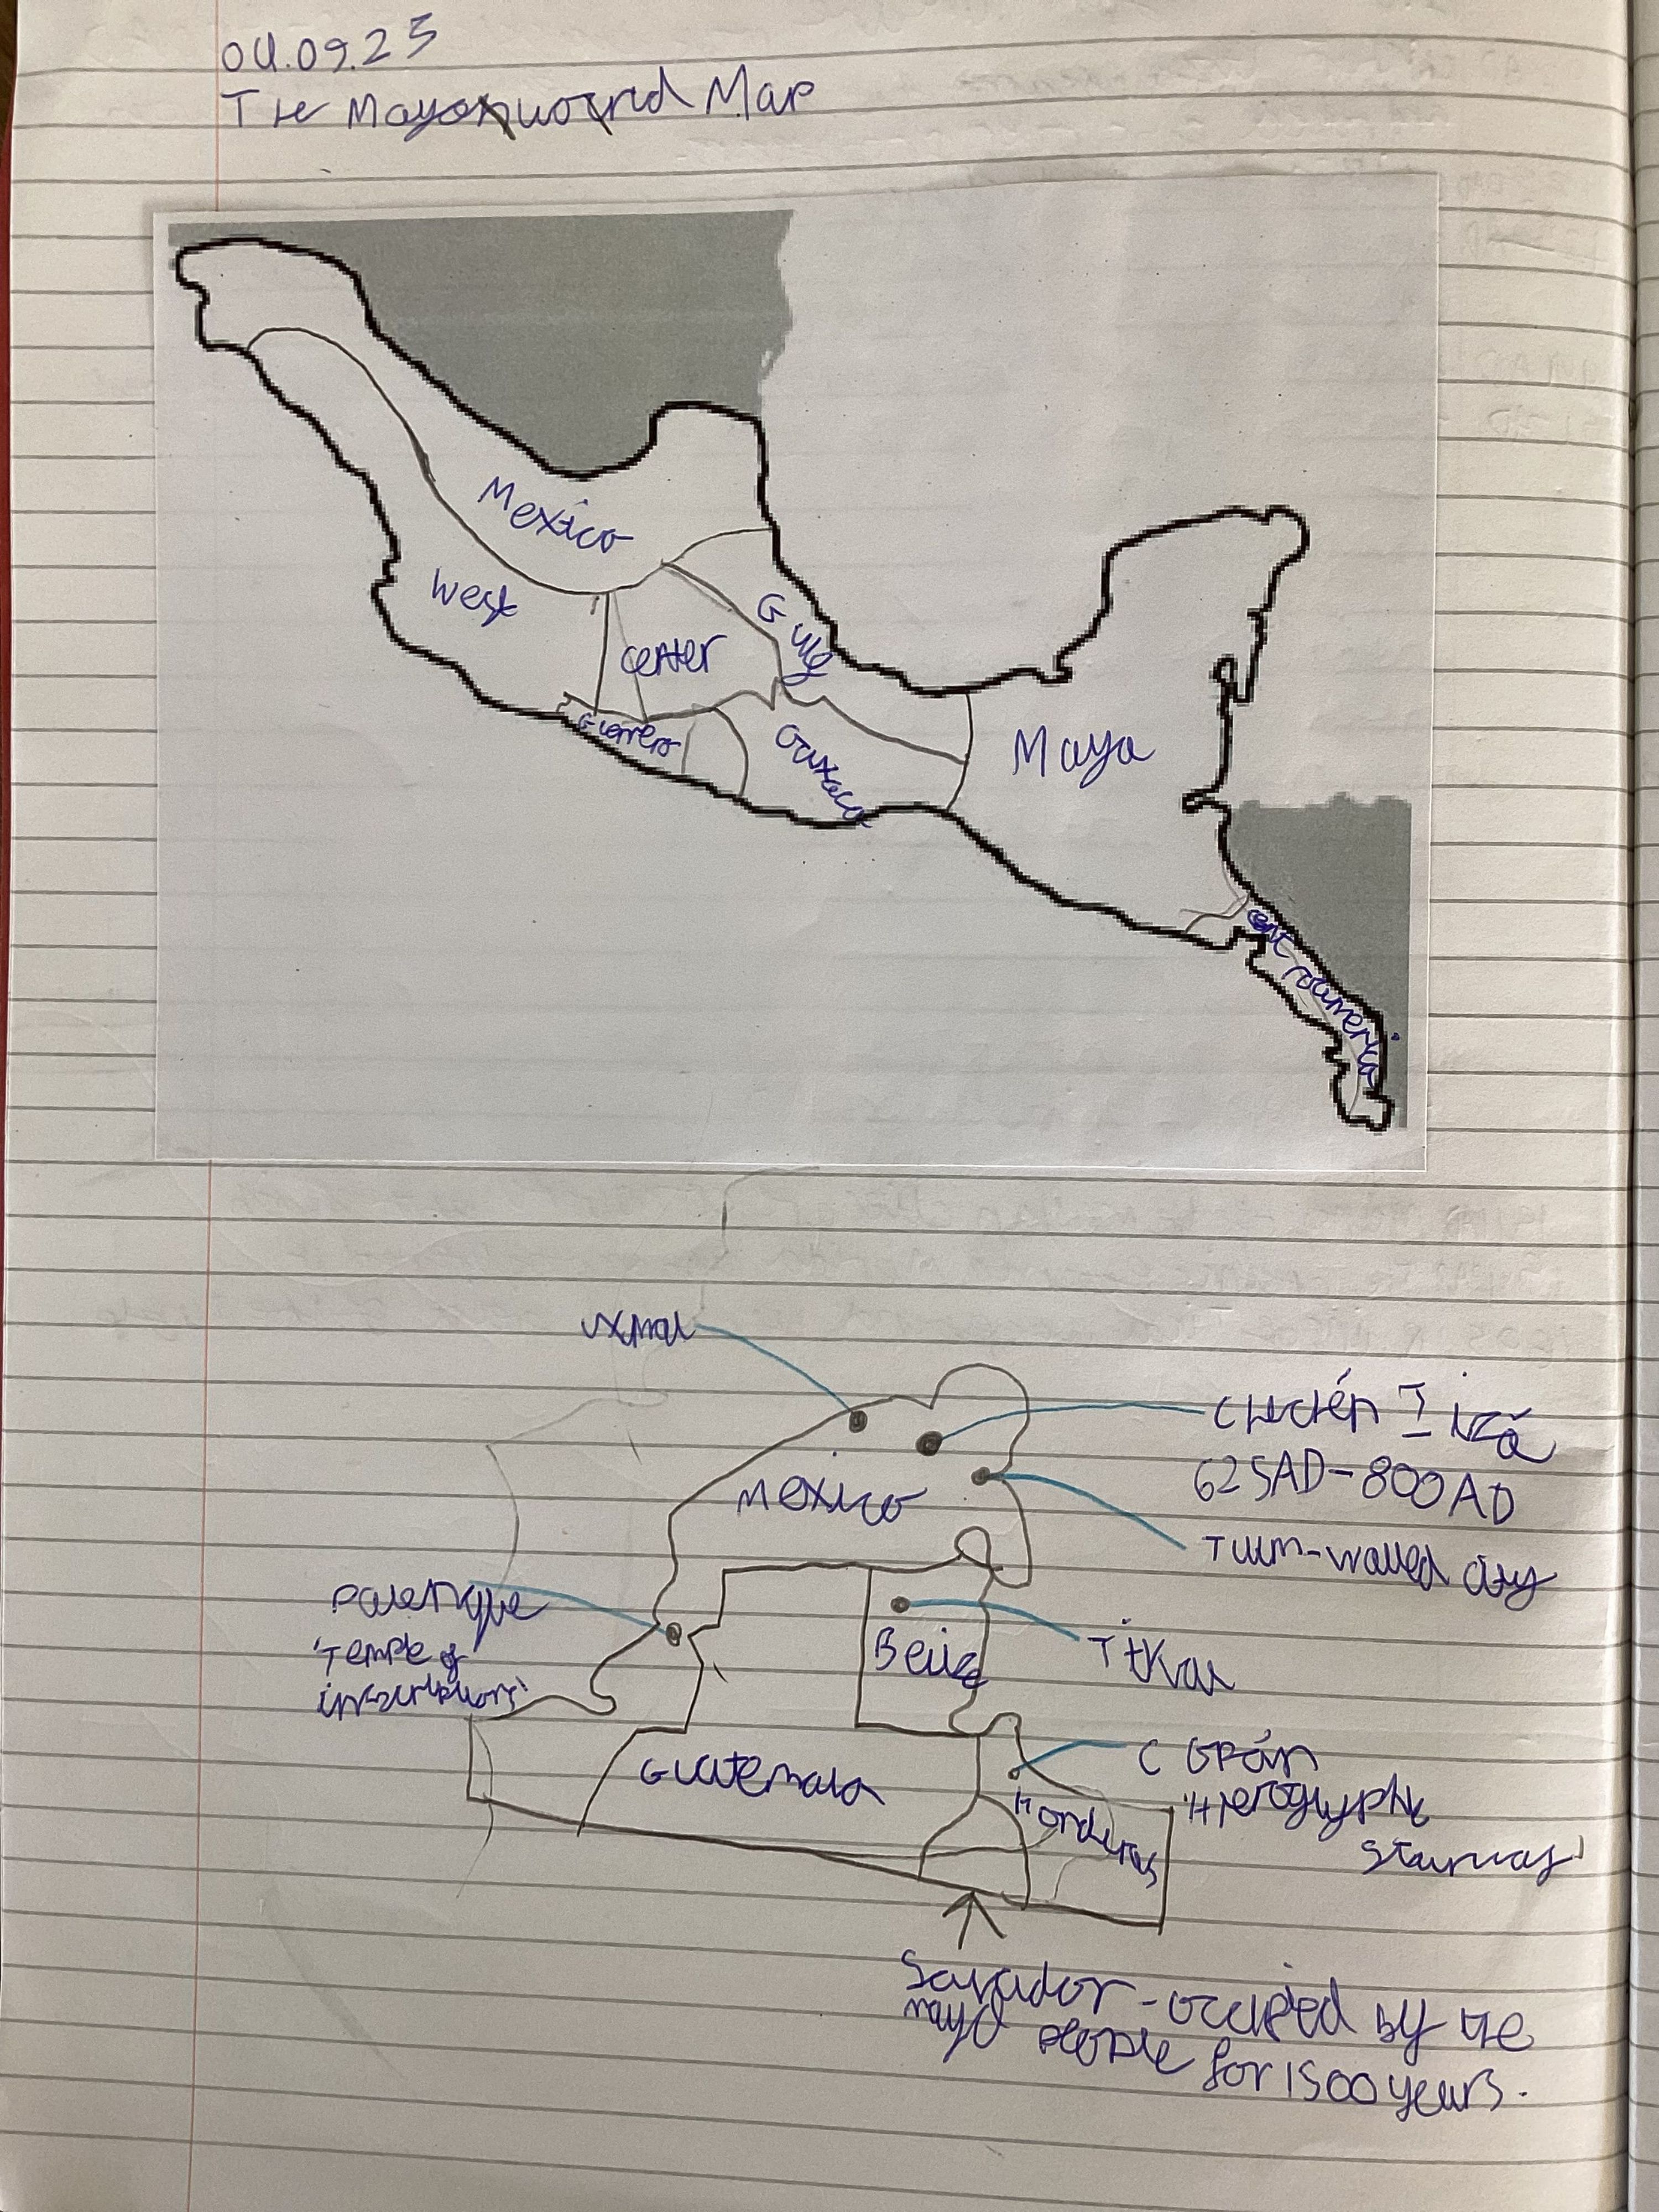 04.09.25
The Maya world Map
Mexico
West
Center
Gulf
Guerrero
Oaxaca
Maya
centroamerica
Uxmal
Chichén Itzá
625AD-800AD
Mexico
Tulum-walled city
Palenque
'Temple of
inscriptions'
Belize
Tikal
Guatemala
Copán
Honduras
'Hieroglyphic
Stairway'
Salvador-occupied by the
maya people for 1500 years.